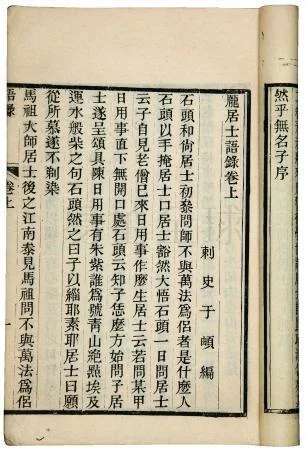 然乎無名子序
龐居士語錄卷上
刺史于頔編
石頭和尚居士初叅問師不與萬法爲侶者是什麼人
石頭以手掩居士口居士豁然大悟石頭一日問居士
云子自見老僧已來日用事作麼生居士云若問某甲
日用事直下無開口處石頭云知子恁麼方始問子居
士遂呈頌具陳日用事有朱紫誰爲號青山絶點埃及
運水般柴之句石頭然之曰子以緇耶素耶居士曰願
從所慕遂不剃染
馬祖大師居士後之江南叅見馬祖問不與萬法爲侶
語錄 卷上 一